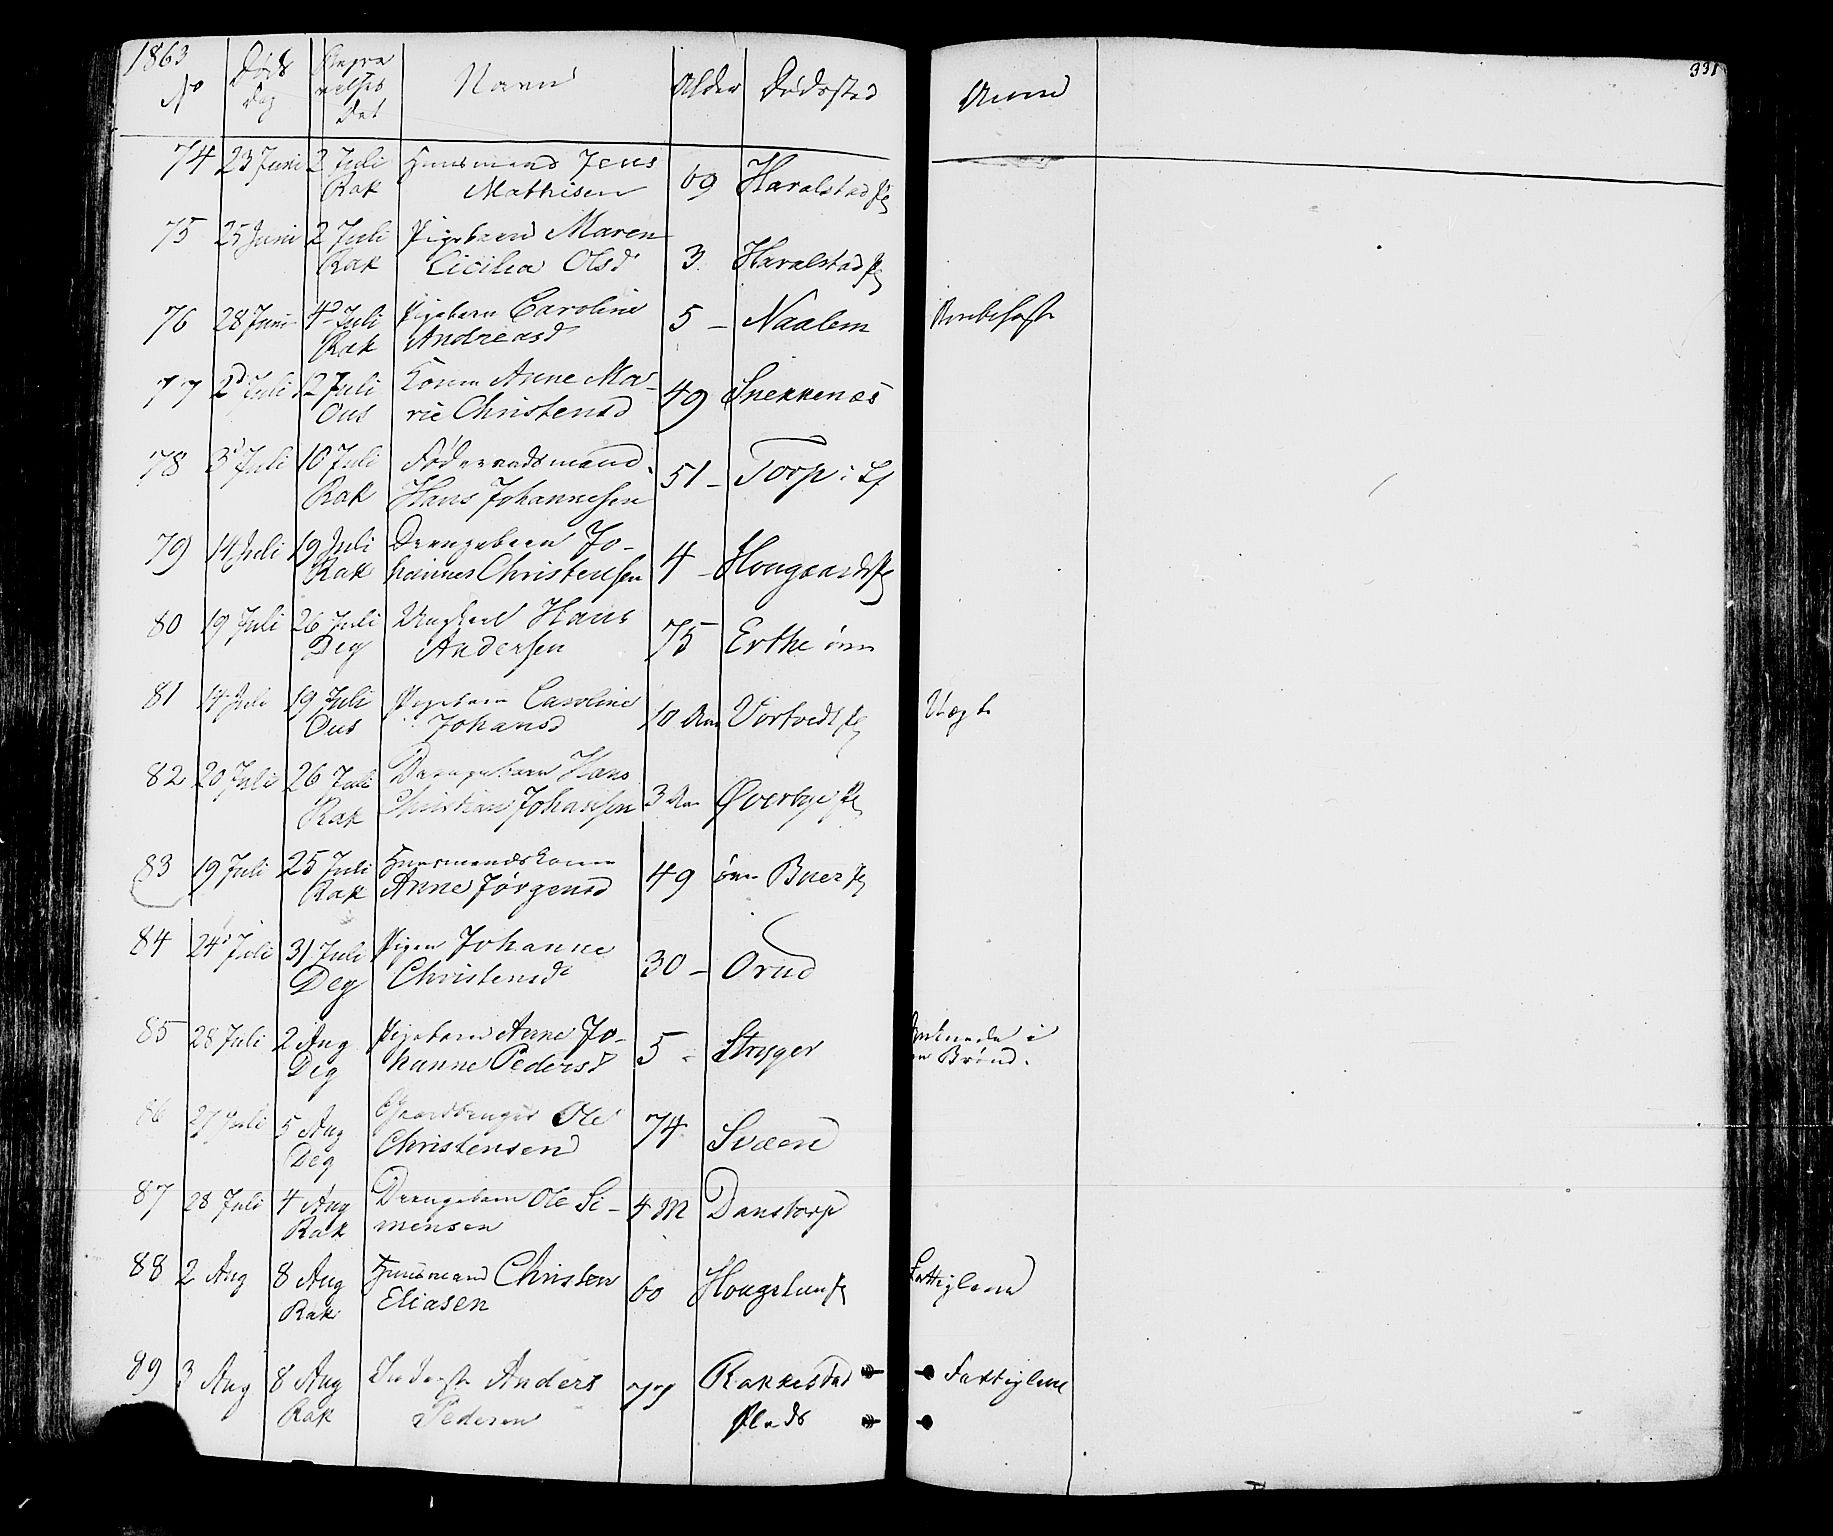 1863
331
No
Døds
Dag
Begra
velses
Dat
Navn
Alder
Dødssted
Anm
74 23 Juni 2 Juli Huusmand Jens 69 Haralstad
Rak Mathisen
75 25 Juni 2 Juli Pigebarn Maren 3 Haralstad
Rak Cicilia Olsd
76 28 Juni 4 Juli Pigebarn Caroline 5 - Naalem
Rak Andreasd
77 2 Juli 12 Juli Konen Anne Ma- 49 Snekkenes
Ous rie Christensd
78 3 Juli 10 Juli Føderaadsmand 51 - Torp i
Rak Hans Johannesen
79 14 Juli 19 Juli Drengebarn Jo- 4 - Hougaard
Rak hannes Christensen
80 19 Juli 26 Juli Ungkarl Hans 75 Erthe
Deg Andersen
81 14 Juli 19 Juli Pigebarn Caroline 10 Vortvedt
Ous Johansd
82 20 Juli 26 Juli Drengebarn Hans 3 Øverbye
Rak Christian Johansen
83 19 Juli 25 Juli Huusmandskone 49 Buer
Rak Anne Jørgensd
84 24 Juli 31 Juli Pigen Johanne 30 - Orud
Deg Christensd
85 28 Juli 2 Aug Pigebarn Anne Jo- 5 - Stryger Druknede i
Deg hanne Pedersd en Brønd.
86 27 Juli 5 Aug Gaardbruger Ole 74 Svæen
Deg Christensen
87 28 Juli 4 Aug Drengebarn Ole Si- 4 M Danstorp
Rak mensen
88 2 Aug 8 Aug Huusmand Christen 60 Fattiglem
Rak Eliasen
89 3 Aug 8 Aug Anders 77 Rakkestad Fattiglem
Rak Pedersen Plads